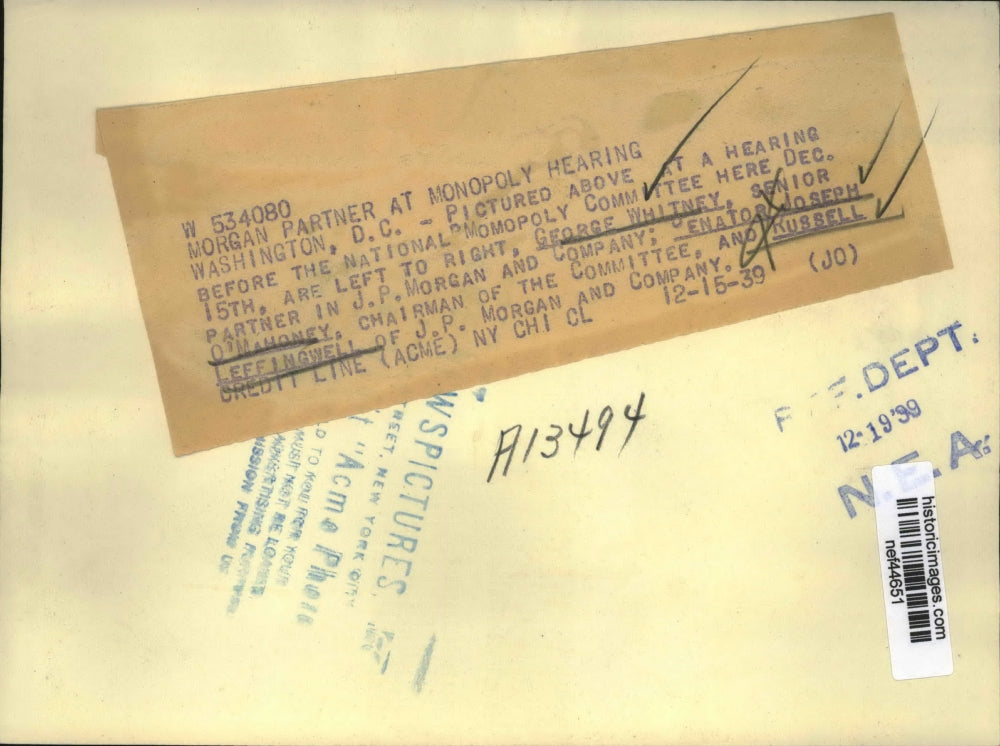 W 534080
MORGAN PARTNER AT MONOPOLY HEARING
WASHINGTON, D.C. - PICTURED ABOVE AT A HEARING
BEFORE THE NATIONAL "MOMOPOLY COMMITTEE HERE DEC.
15TH, ARE LEFT TO RIGHT, GEORGE WHITNEY, SENIOR
PARTNER IN J.P. MORGAN AND COMPANY; SENATOR JOSEPH
O'MAHONEY, CHAIRMAN OF THE COMMITTEE, AND RUSSELL
LEFFINGWELL OF J.P. MORGAN AND COMPANY.
CREDIT LINE (ACME) NY CHI CL 12-15-39 (JO)
A13494
F.DEPT.
12-19'39
N.E.A.
WSPICTURES,
REET, NEW YORK CITY
"Acme Photo
TO YOU FOR YOUR
MUST NOT BE LOANED
historicimages.com
nef44651